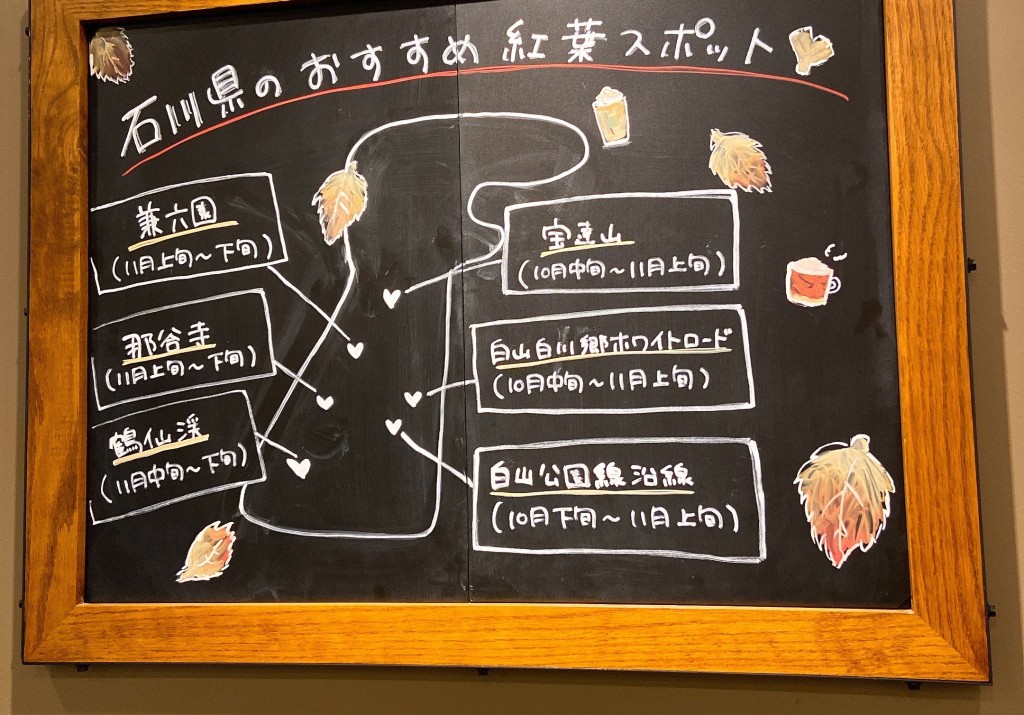 石川県のおすすめ紅葉スポット
兼六園
(11月上旬～下旬)
那谷寺
(11月上旬～下旬)
鶴仙渓
(11月中旬～下旬)
宝達山
(10月中旬～11月上旬)
白山白川郷ホワイトロード
(10月中旬～11月上旬)
白山公園線沿線
(10月下旬～11月上旬)